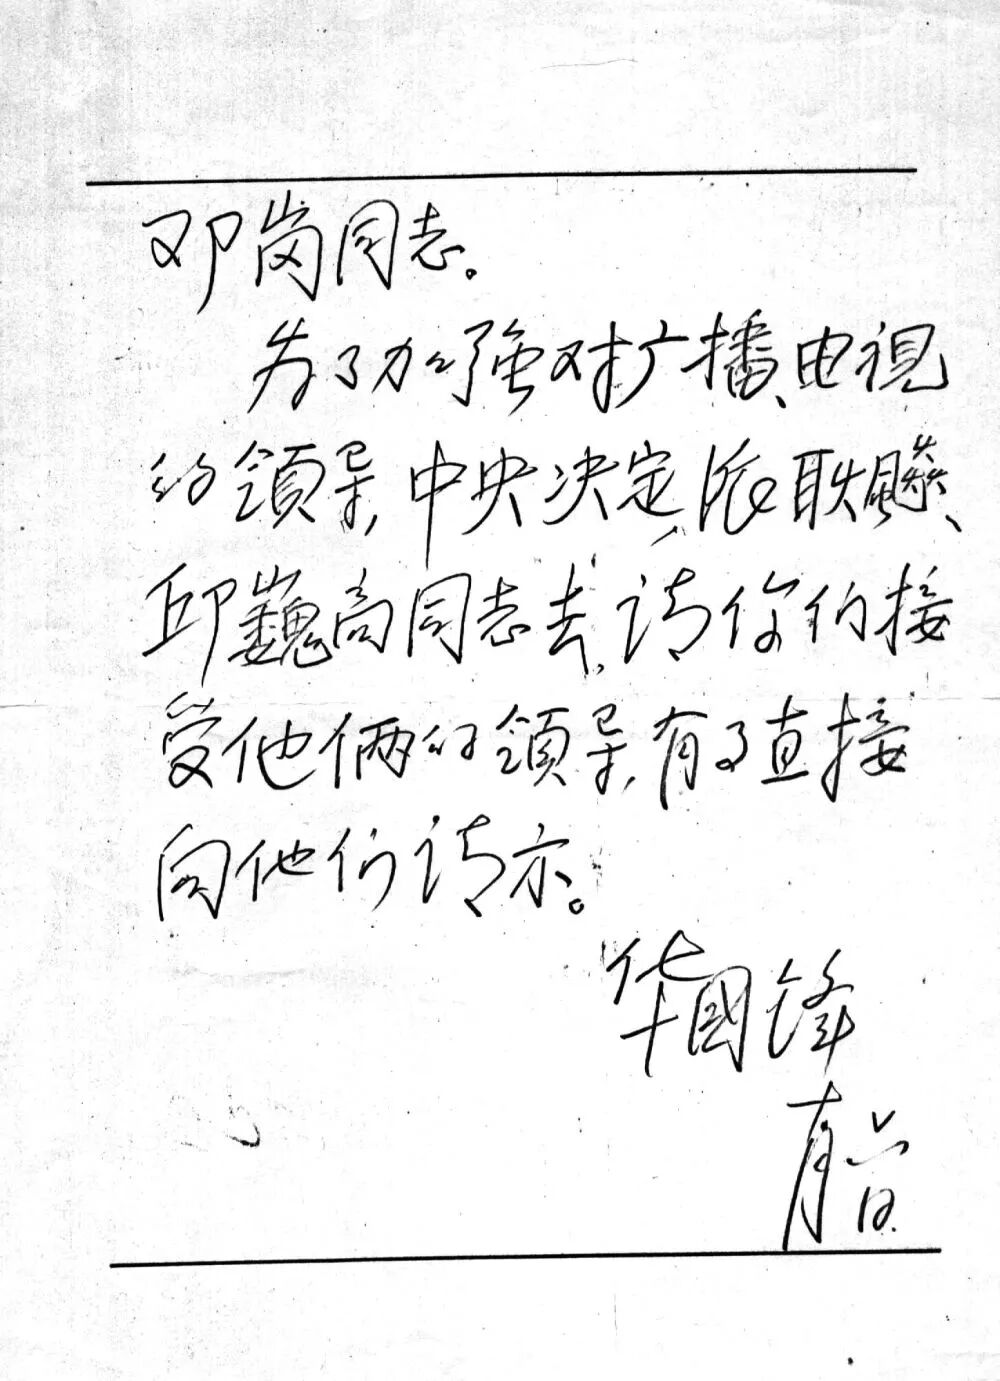 邓岗同志。
为了加强对广播、电視
的領导，中央决定，派耿飚、
邱巍高同志去，请你们接
受他俩的領导，有事直接
向他们请示。
华國锋
十月六日